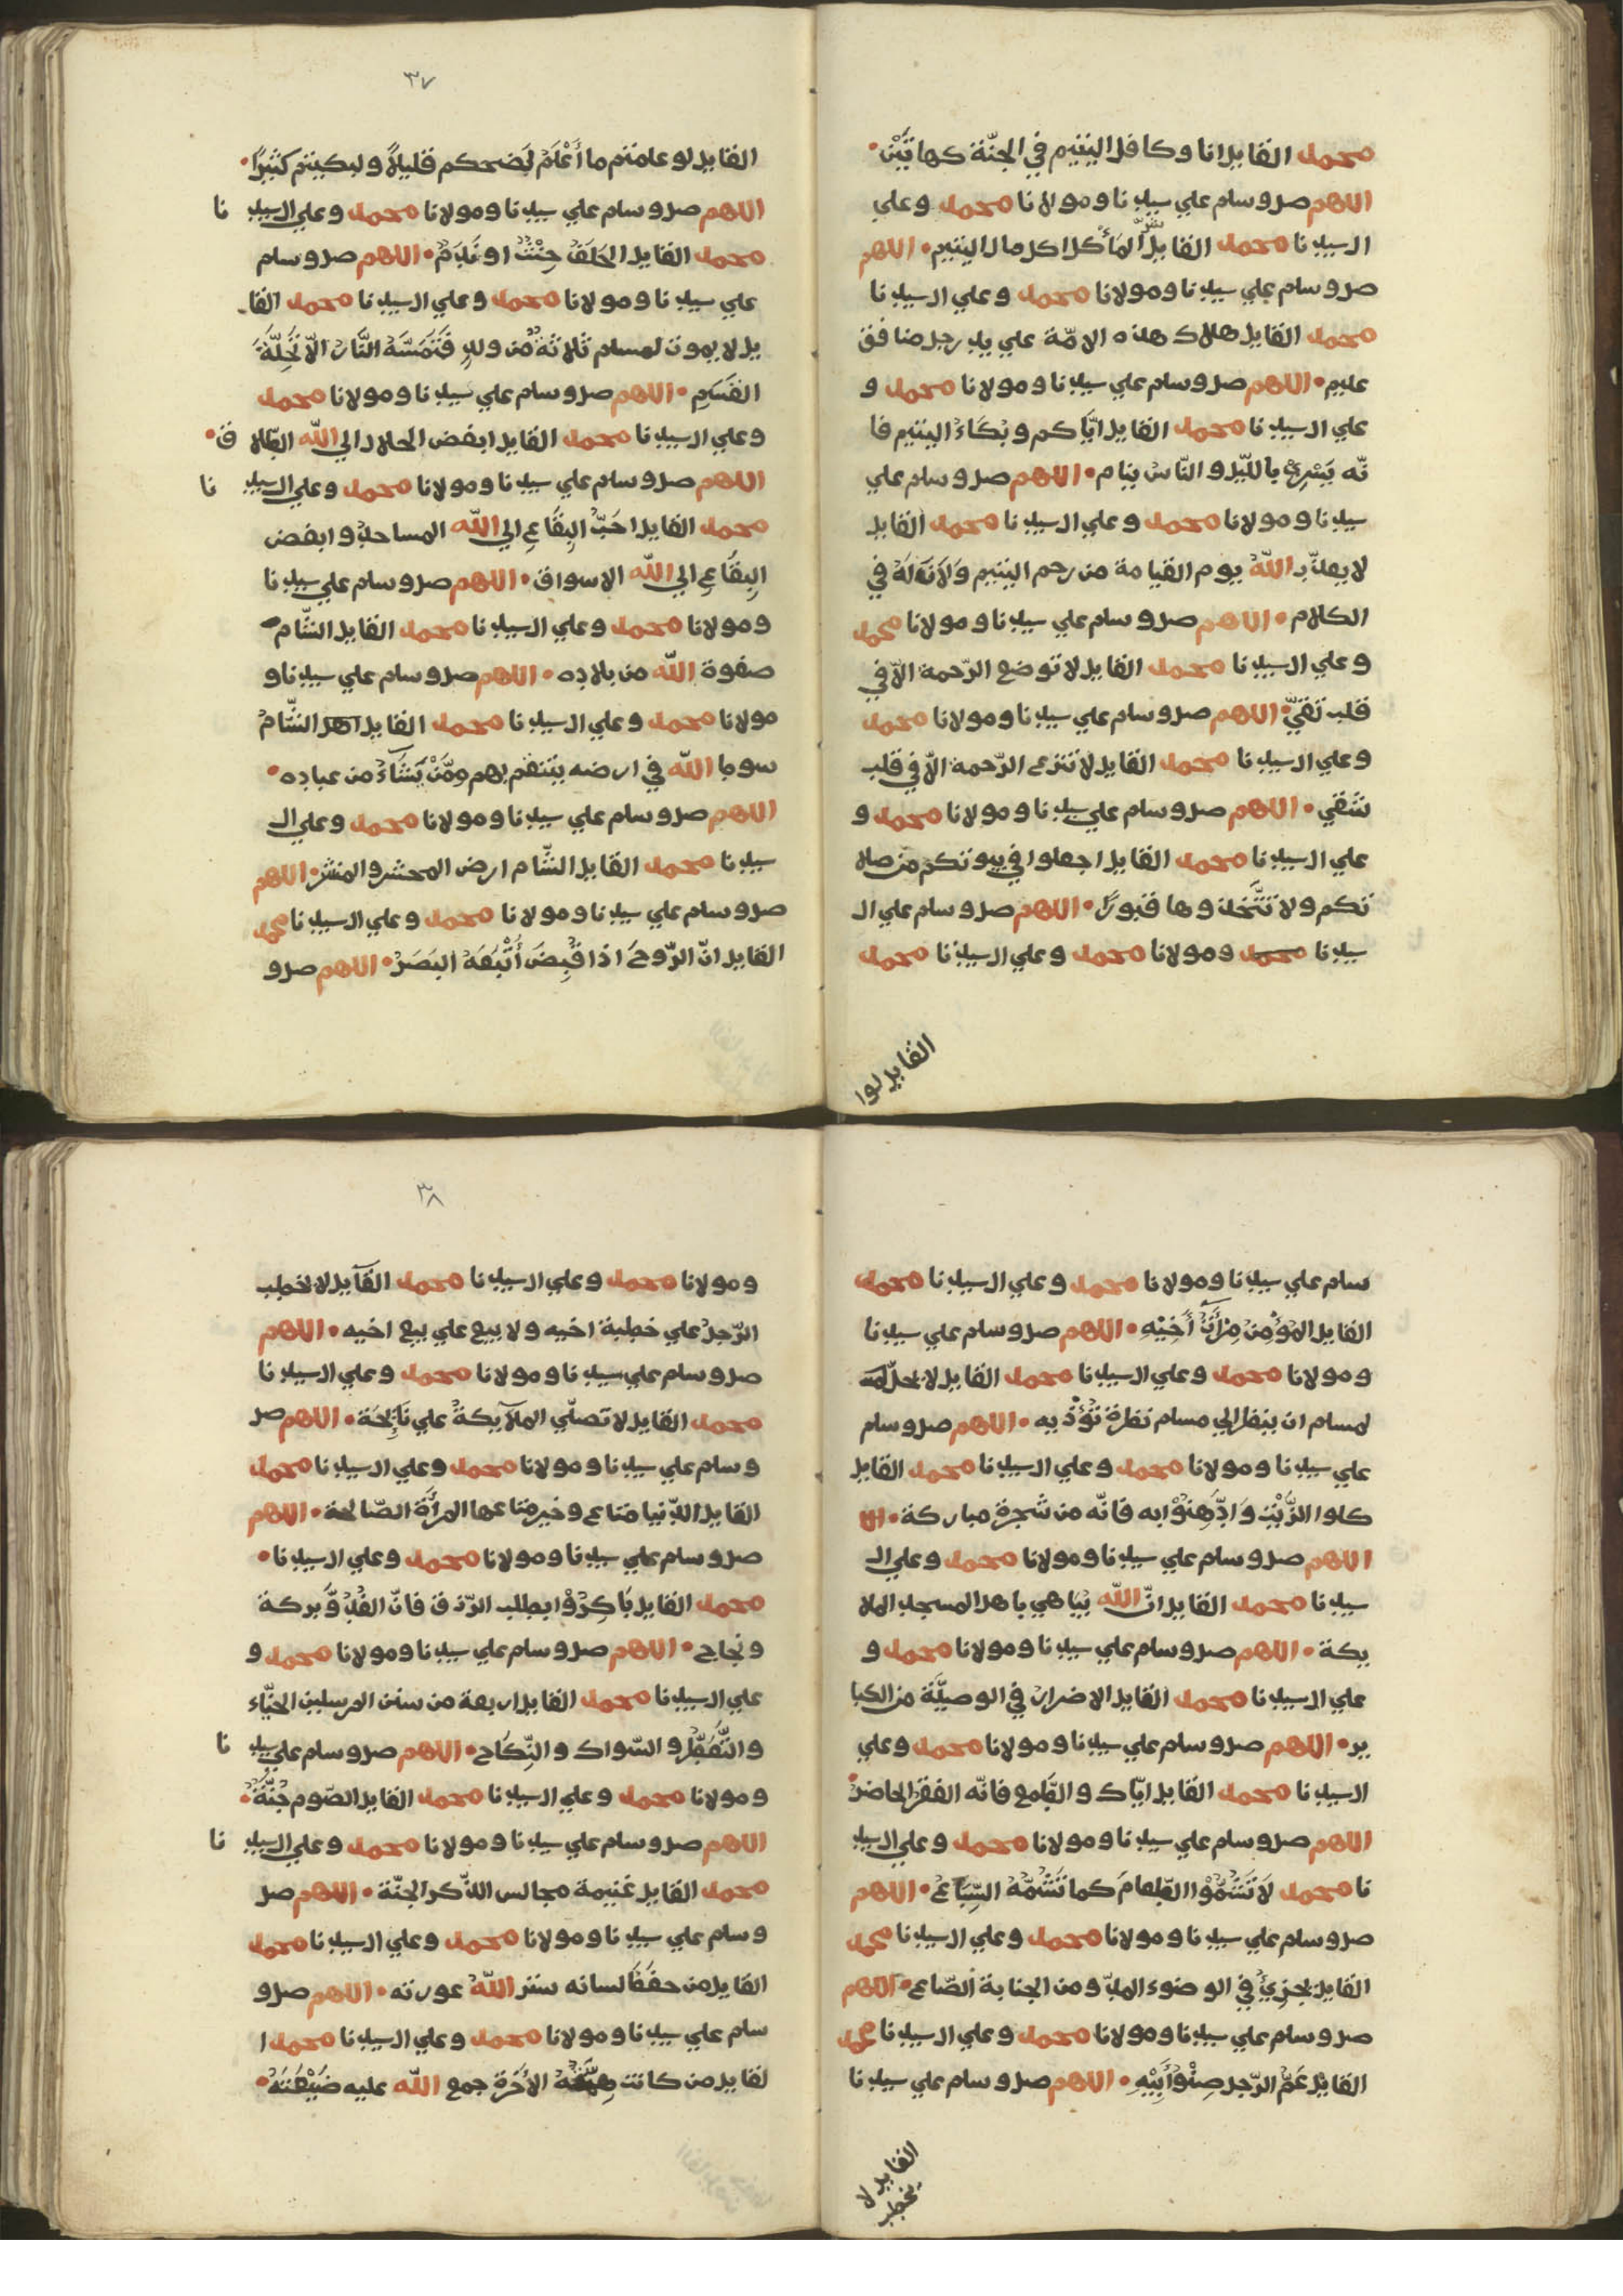 محمد القايل انا وكافل اليتيم في الجنّة كهاتَيْن
اللهم صل وسلم علي سيدنا ومولانا محمد وعلي
ال سيدنا محمد القايل شرّ المَأكل اكل مال اليتيم اللهم
صل وسلم علي سيدنا ومولانا محمد وعلي ال سيدنا
محمد القايل هلاك هذه الامّة علي يد رجل منافق
عليم اللهم صل وسلم علي سيدنا ومولانا محمد و
علي ال سيدنا محمد القايل ايّاكم وبُكَاءُ اليتيم فا
نّه يَسْرِيْ بالليّل والنّاس نيام اللهم صل وسلم علي
سيدنا ومولانا محمد وعلي ال سيدنا محمد القايل
لا يعذّب اللّهُ يوم القيامة من رحم اليتيم وَلَانَ لَهُ في
الكلام اللهم صل وسلم علي سيدنا ومولانا محمد
وعلي ال سيدنا محمد القايل لا توضع الرّحمة الّا في
قلب تقيّ اللهم صل وسلم علي سيدنا ومولانا محمد
وعلي ال سيدنا محمد القايل لا تنزع الرّحمة الّا في قلب
شقي اللهم صل وسلم علي سيدنا ومولانا محمد و
علي ال سيدنا محمد القايل اجعلوا في بيوتكم من صلا
تكم ولا تتّخذوها قبورًا اللهم صل وسلم علي ال
سيدنا محمد ومولانا محمد وعلي ال سيدنا محمد
القايل لوا
٣٧
القايل لو علمتم ما أَعْلَمُ لَضحكم قليلاً ولبكيتم كثيرًا
اللهم صل وسلم علي سيدنا ومولانا محمد وعلي ال سيد نا
محمد القايل الحَلَفُ حِنْثٌ او نَدَمٌ اللهم صل وسلم
علي سيدنا ومولانا محمد وعلي ال سيدنا محمد القا
يل لا يموت لمسلم ثلاثةٌ من ولدٍ فَتَمَسَّهُ النَّار الّا تَحِلَّةَ
القَسَمِ اللهم صل وسلم علي سيدنا ومولانا محمد
وعلي ال سيدنا محمد القايل ابغض الحلال الي اللّه الطّلا ق
اللهم صل وسلم علي سيدنا ومولانا محمد وعلي ال سيد نا
محمد القايل احَبُّ البِقَاعِ الي اللّه المساجدُ وابغض
البِقَاعِ الي اللّه الاسواق اللهم صل وسلم علي سيدنا
ومولانا محمد وعلي ال سيدنا محمد القايل الشّام
صفوة اللّه من بلاده اللهم صل وسلم علي سيدنا و
مولانا محمد وعلي ال سيدنا محمد القايل اهل الشّام
سوط اللّه في ارضه ينتقم بهم ومّنْ يَشَآءُ من عباده
اللهم صل وسلم علي سيدنا ومولانا محمد وعلي ال
سيدنا محمد القايل الشّام ارض المحشر والمنشر اللهم
صل وسلم علي سيدنا ومولانا محمد وعلي ال سيدنا محمد
القايل انّ الرّوحَ اذا قُبِضَ أُتْبَعَهُ البَصَرْ اللهم صل و
سلم علي سيدنا ومولانا محمد وعلي ال سيدنا محمد
القايل المُؤْمِن مِرْآتُ أَخِيْهِ اللهم صل وسلم علي سيدنا
ومولانا محمد وعلي ال سيدنا محمد القايل لا يحلّ
لمسلم ان ينظر الي مسلم نظرة تُؤْذيه اللهم صل وسلم
علي سيدنا ومولانا محمد وعلي ال سيدنا محمد القايل
كلوا الزَّيْتَ وَادَّهِنُوْا به فانّه من شجرة مباركة الا
اللهم صل وسلم علي سيدنا ومولانا محمد وعلي ال
سيدنا محمد القايل انّ اللّه يُبَاهي باهل المسجد الملا
يكة اللهم صل وسلم علي سيدنا ومولانا محمد و
علي ال سيدنا محمد القايل الاضرار في الوصيّة من الكبا
ير اللهم صل وسلم علي سيدنا ومولانا محمد وعلي
ال سيدنا محمد القايل ايّاك والطّمع فانّه الفقر الحاضر
اللهم صل وسلم علي سيدنا ومولانا محمد وعلي ال سيد
نا محمد لَا تَشَمُّوْا الطّعامَ كما تَشُمّهُ السِّبَاعُ اللهم
صل وسلم علي سيدنا ومولانا محمد وعلي ال سيدنا محمد
القايل يجزِيْ في الوضوء المدّ ومن الجنابة الصّاع اللهم
صل وسلم علي سيدنا ومولانا محمد وعلي ال سيدنا محمد
القايل عَمُّ الرّجل صِنْوُ أَبِيْهِ اللهم صل وسلم علي سيدنا
القايل لا
يخطب
٣٨
ومولانا محمد وعلي ال سيدنا محمد القآيل لا يخطب
الرّجلُ علي خطبة اخيه ولا يبيع علي بيع اخيه اللهم
صل وسلم علي سيدنا ومولانا محمد وعلي ال سيدنا
محمد القايل لا تصلّي الملآيكةُ علي نَايِحَة اللهم صل
وسلم علي سيدنا ومولانا محمد وعلي ال سيدنا محمد
القايل الدّنيا متاع وخير متاعها المرأَة الصّالحة اللهم
صل وسلم علي سيدنا ومولانا محمد وعلي ال سيدنا
محمد القايل بَاكِرُوْا بطلب الرّزق فانّ الغُدُوَّ بركة
ونجاح اللهم صل وسلم علي سيدنا ومولانا محمد و
علي ال سيدنا محمد القايل اربعة من سنن المرسلين الحنّاء
والتَّعَطُّر والسّواك والنِّكَاح اللهم صل وسلم علي سيد نا
ومولانا محمد وعلي ال سيدنا محمد القايل الصّوم جُنَّةٌ
اللهم صل وسلم علي سيدنا ومولانا محمد وعلي ال سيد نا
محمد القايل غنيمة مجالس الذّكر الجنّة اللهم صل
وسلم علي سيدنا ومولانا محمد وعلي ال سيدنا محمد
القايل من حفظ لسانه ستر اللّهُ عورته اللهم صل و
سلم علي سيدنا ومولانا محمد وعلي ال سيدنا محمد ا
لقايل من كانت هِمَّتُهُ الأخرة جمع اللّه عليه ضَيْعَتَهُ